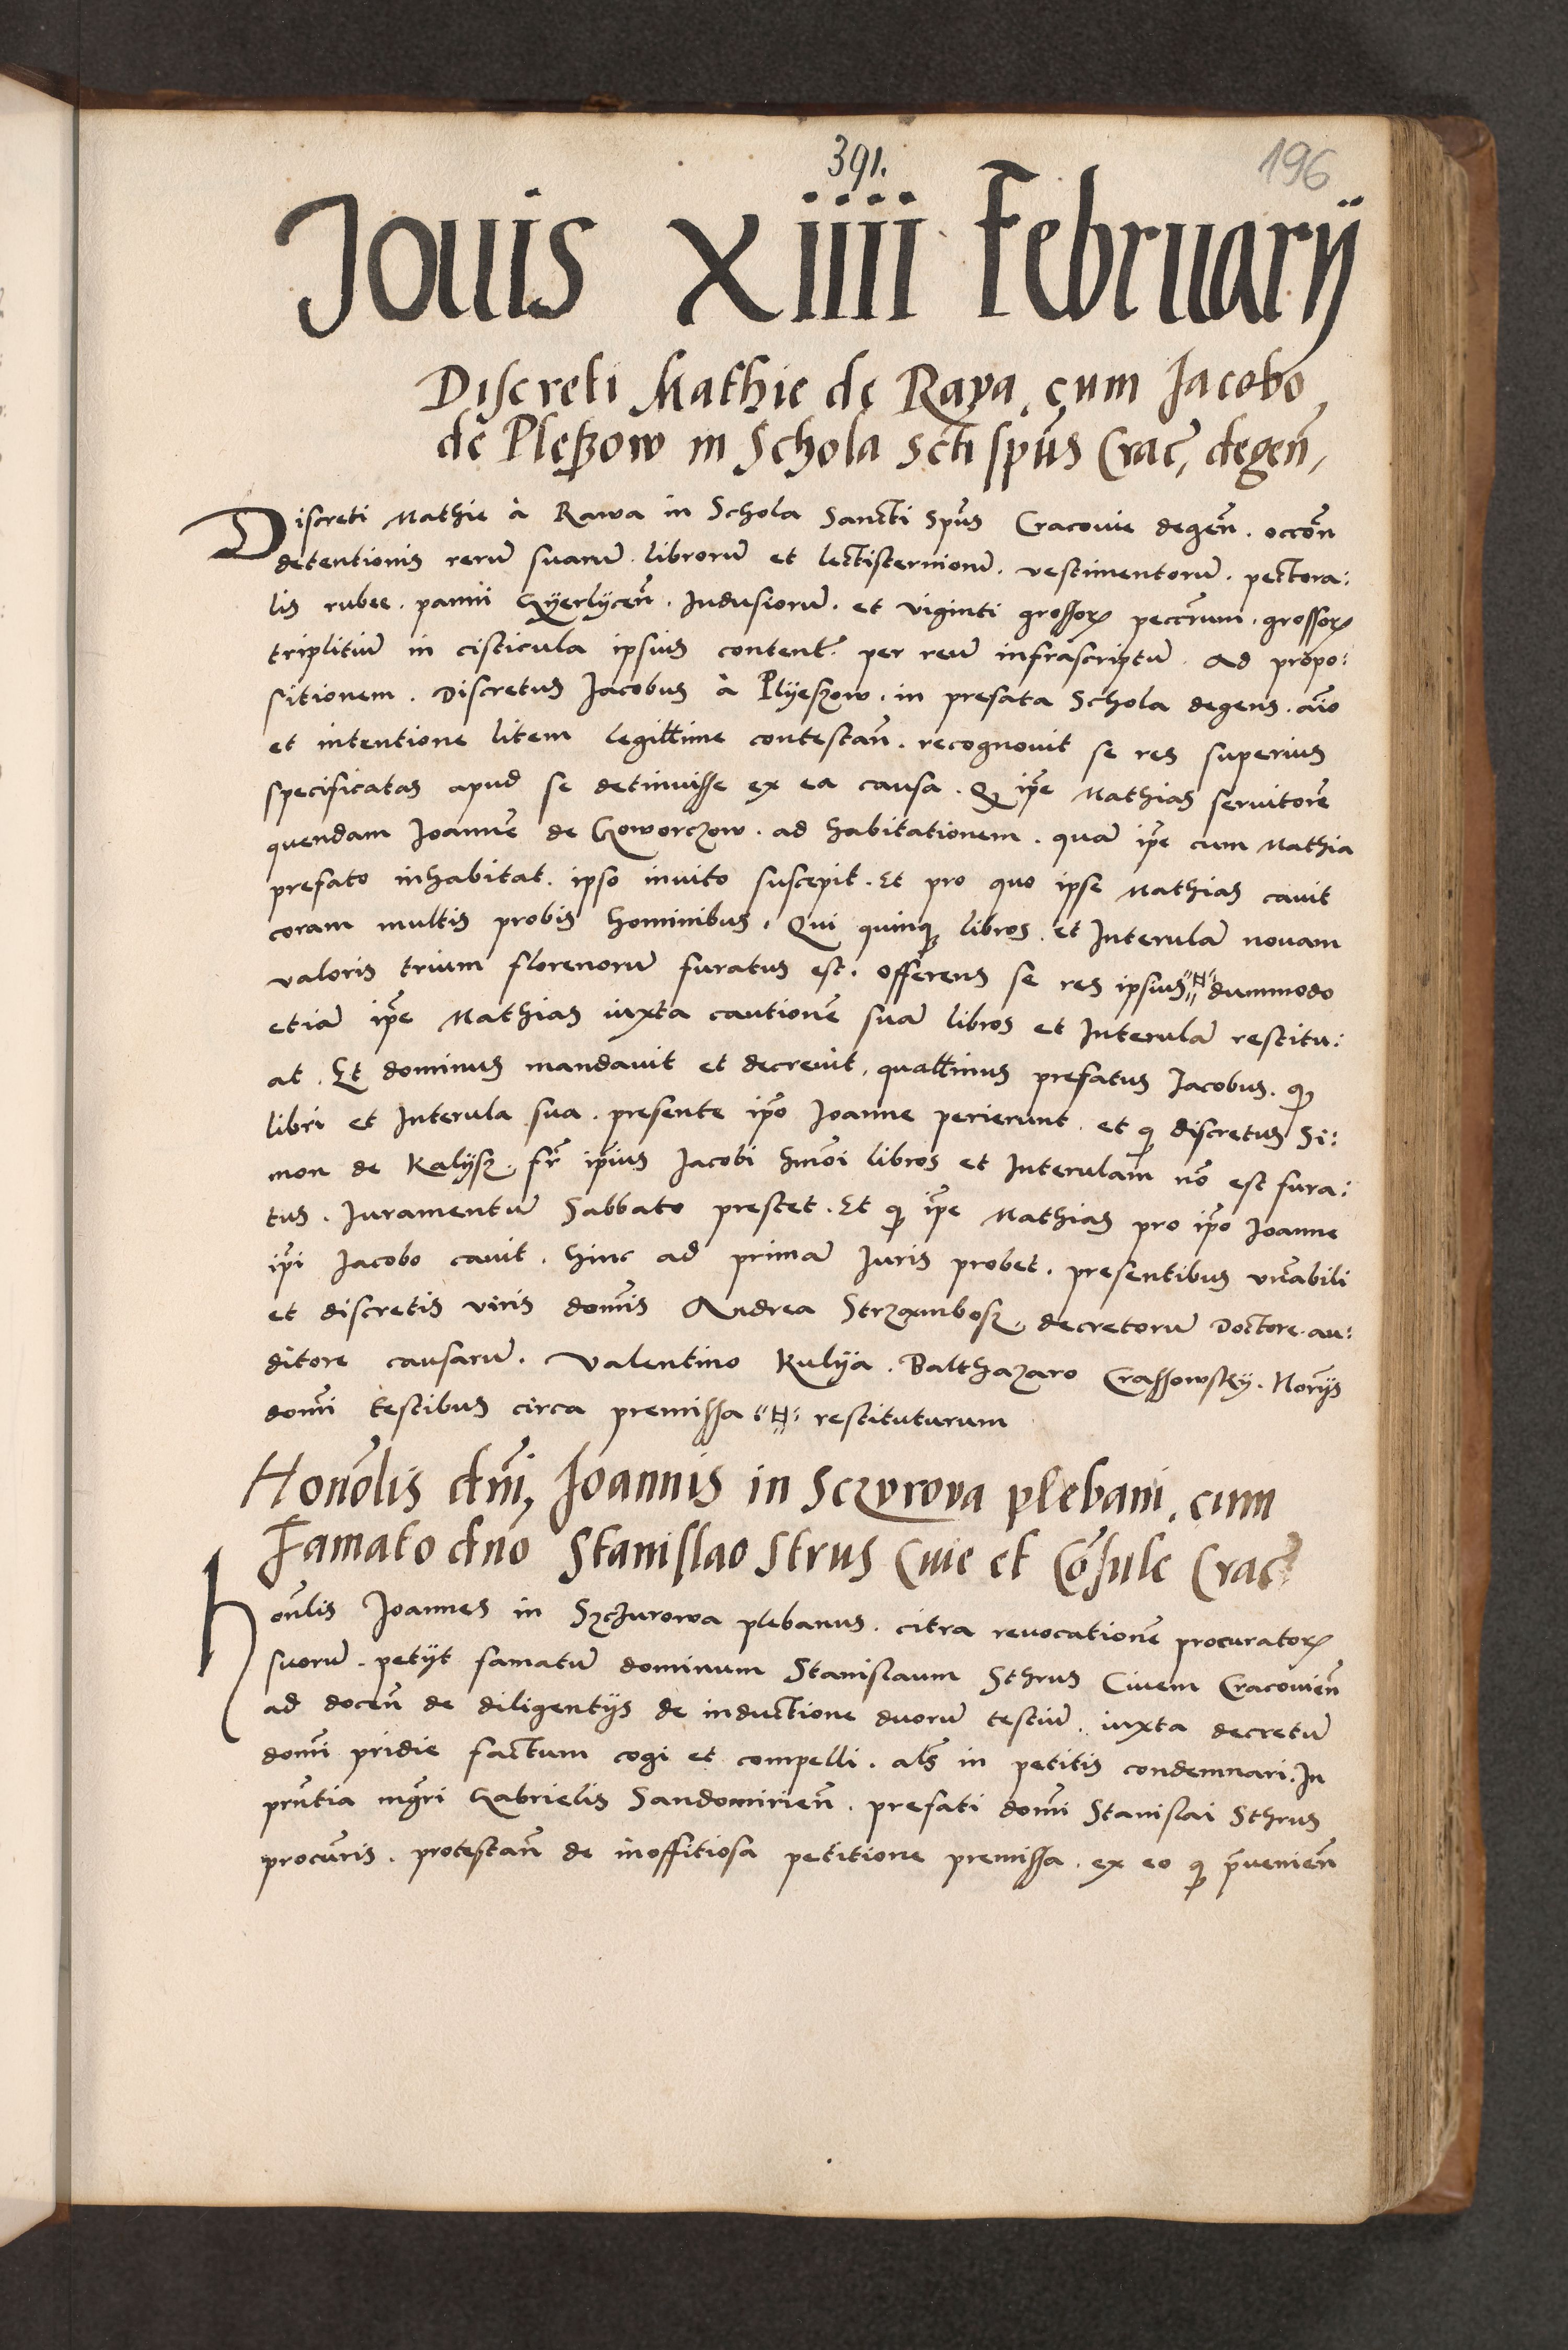 391.
196
Jouis xiiii Februarij
Discreti Mathie de Rava, cum Jacobo
de Pleßow in Schola Scti spūs Crac̄, degen̄,
Discreti Mathie à Rawa in Schola Sancti Spūs Cracouie degen̄. occōn
detentionis rerū suarū. librorū et lectisterniorū. vestimentorū. pectora:
lis rubee. panni Gyerlycen̄. Indusiorū. et viginti grossorꝝ peccūrum. grossorꝝ
triplitiū in cisticula ipsius content̄. per reū infrascriptū. Ad propo:
sitionem. Discretus Jacobus à Plyeszow. in prefata Schola degens. aīo
et intentione litem legitt̄ime contestan̄. recognouit se res superius
specificatas apud se detinuisse ex ea causa. Qꝫ ip̄e Mathias seruitorē
quendam Joannē de Goworczow. ad habitationem. quā ip̄e cum Mathia
prefato inhabitat. ipso inuito suscepit. Et pro quo ipse Mathias cauit
coram multis probis hominibus. Qui quinqꝫ libros. et Interulā nouam
valoris trium florenorū furatus est. offerens se res ipsius # dummodo
etiā ip̄e Mathias iuxta cautionē suā libros et Interulā restitu:
at. Et dominus mandauit et decreuit, quatt̄inus prefatus Jacobus. qꝫ
libri et Interula sua. presente ip̄o Joanne perierunt. et qꝫ discretus Si:
mon de Kalysz. fr̄ ip̄ius Jacobi hmōi libros et Interulam nō est fura:
tus. Iuramentū Sabbato prestet. Et qꝫ ip̄e Mathias pro ip̄o Joanne
ip̄i Jacobo cauit. hinc ad primā Iuris probet. presentibus vn̄abili
et discretis viris domīs Andrea Strzambosz. decretorū Doctore. au:
ditore causarū. Valentino Kulya. Balthazaro Crassowsky. Norijs
domī testibus circa premissa # restituturum
Honōlis dn̄i, Joannis in Sczvrova plebani, cum
Famato dn̄o Stanislao Strus Ciuie et Cōsule Crac̄
Honōlis Joannes in Szczurowa plebanus. citra reuocationē procuratorꝝ
suorū. petijt famatū dominum Stanislaum Sthrus Ciuem Cracouien̄
ad docen̄ de diligentijs de inductione duorū testiū. iuxta decretū
domī pridie factum cogi et compelli. al̄s in petitis condemnari. In
prn̄tia mg̃ri Gabrielis Sandomirien̄. prefati domī Stanislai Sthrus
procur̄is. protestan̄ de inoffitiosa petitione premissa. ex eo qꝫ p̄uenien̄